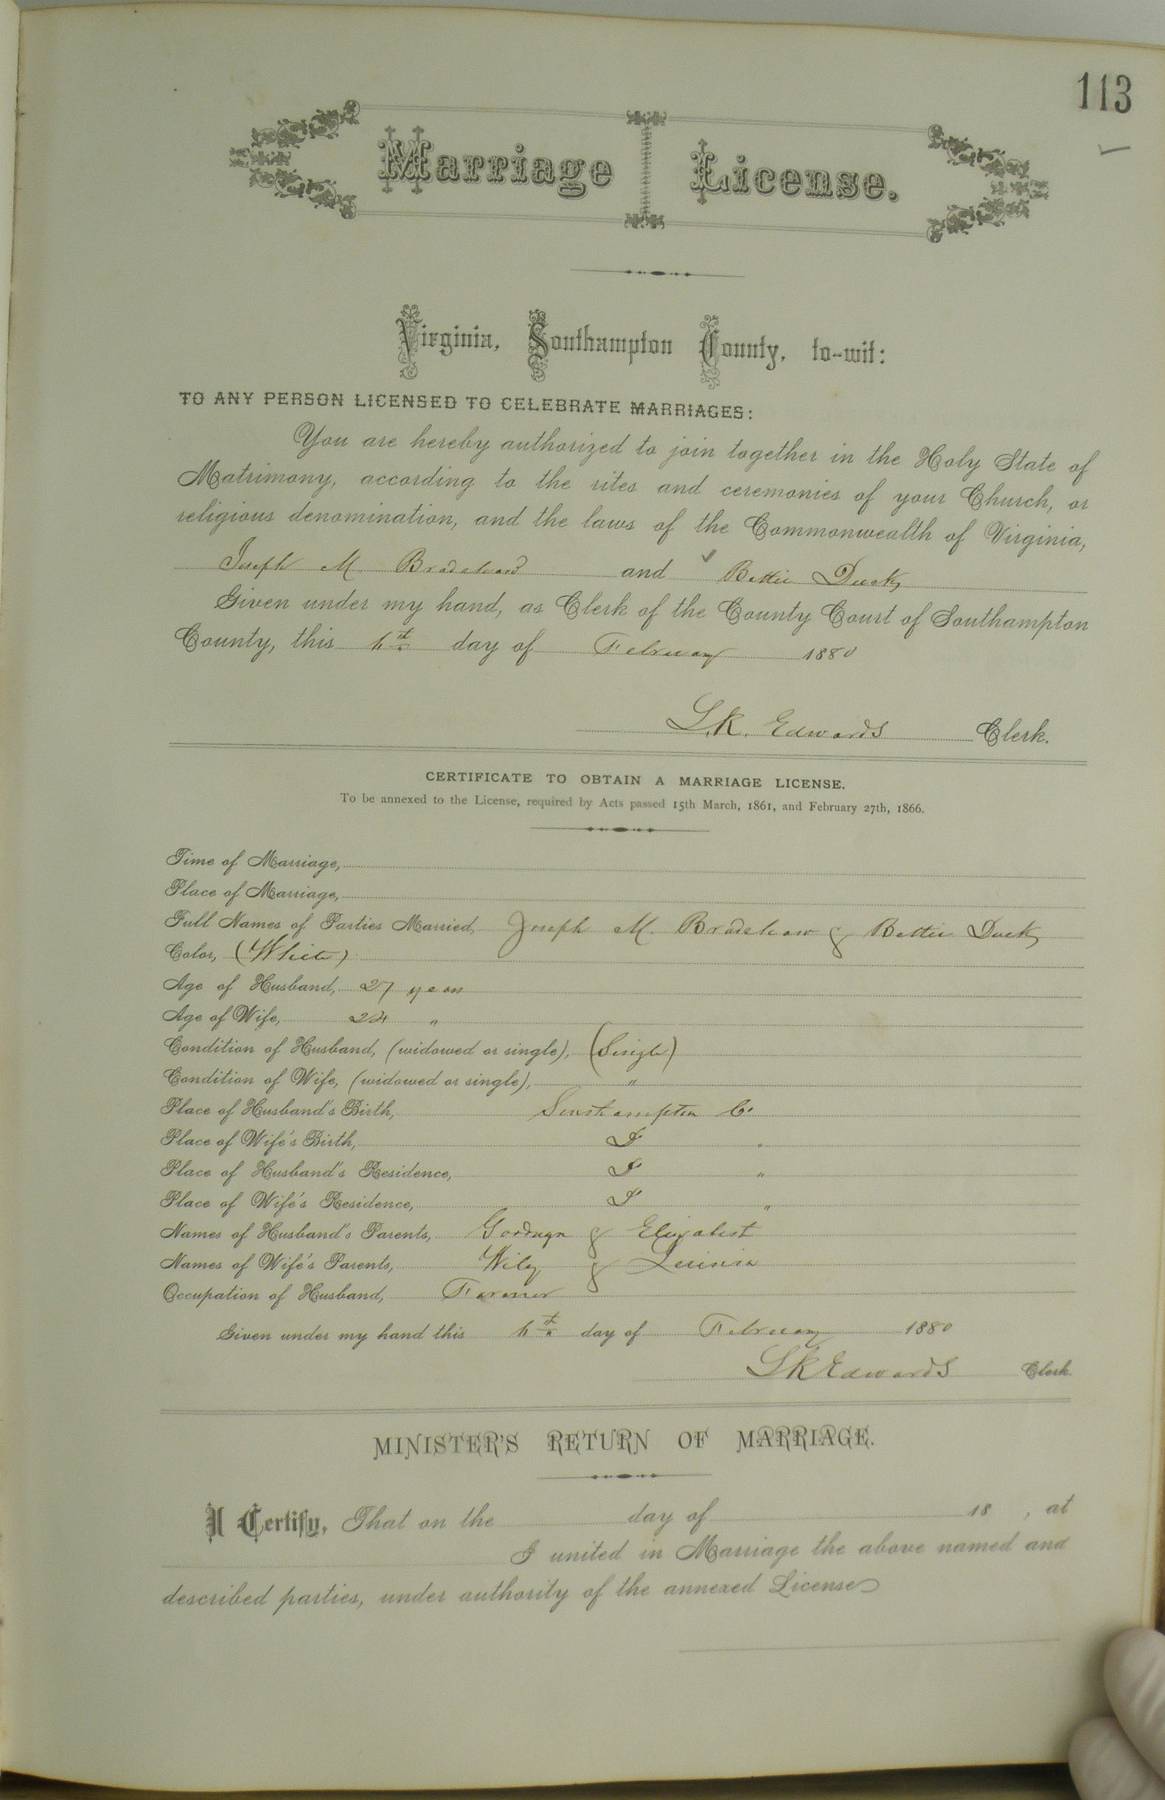 113
Marriage License.
Virginia, Southampton County, to-wit:
TO ANY PERSON LICENSED TO CELEBRATE MARRIAGES:
You are hereby authorized to join together in the Holy State of
Matrimony, according to the rites and ceremonies of your Church, or
religious denomination, and the laws of the Commonwealth of Virginia,
Joseph M. Bradshaw and Bettie Duck
Given under my hand, as Clerk of the County Court of Southampton
County, this day of February 1880
L.K. Edwards Clerk.
CERTIFICATE TO OBTAIN A MARRIAGE LICENSE.
To be annexed to the License, required by Acts passed 15th March, 1861, and February 27th, 1866.
Time of Marriage,
Place of Marriage,
Full Names of Parties Married, Joseph M. Bradshaw & Bettie Duck
Color, (White)
Age of Husband, 27 years
Age of Wife, 24 "
Condition of Husband, (widowed or single), (Single)
Condition of Wife, (widowed or single), "
Place of Husband's Birth, Southampton Co.
Place of Wife's Birth, "
Place of Husband's Residence, "
Place of Wife's Residence, "
Names of Husband's Parents, & Elizabeth
Names of Wife's Parents, Wiley &
Occupation of Husband, Farmer
Given under my hand this day of February 1880
L K Edwards Clerk.
MINISTER'S RETURN OF MARRIAGE.
I Certify, That on the day of 18 , at
I united in Marriage the above named and
described parties, under authority of the annexed License